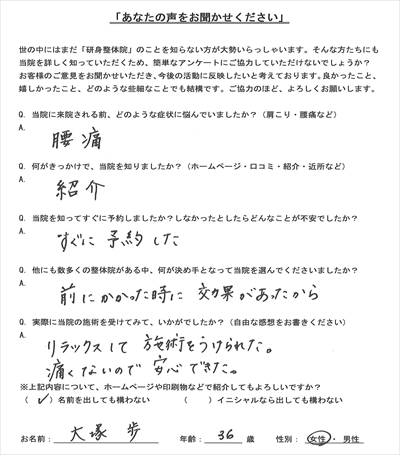 「あなたの声をお聞かせください」
世の中にはまだ「研身整体院」のことを知らない方が大勢いらっしゃいます。そんな方たちにも
当院を詳しく知っていただくため、簡単なアンケートにご協力していただけないでしょうか?
お客様のご意見をお聞かせいただき、今後の活動に反映したいと考えております。良かったこと、
嬉しかったこと、どのような些細なことでも結構です。ご協力のほど、よろしくお願いします。
Q. 当院に来院される前、どのような症状に悩んでいましたか?(肩こり・腰痛など)
A.
腰痛
Q. 何がきっかけで、当院を知りましたか?(ホームページ・口コミ・紹介・近所など)
A.
紹介
Q. 当院を知ってすぐに予約しましたか?しなかったとしたらどんなことが不安でしたか?
A.
すぐに予約した
Q. 他にも数多くの整体院がある中、何が決め手となって当院を選んでくださいましたか?
A.
前にかかった時に効果があったから
Q. 実際に当院の施術を受けてみて、いかがでしたか?(自由な感想をお書きください)
A.
リラックスして施術をうけられた。
痛くないので安心できた。
※上記内容について、ホームページや印刷物などで紹介してもよろしいですか?
(✓)名前を出しても構わない ( )イニシャルなら出しても構わない
お名前: 大塚 歩 年齢: 36 歳 性別: 女性・男性